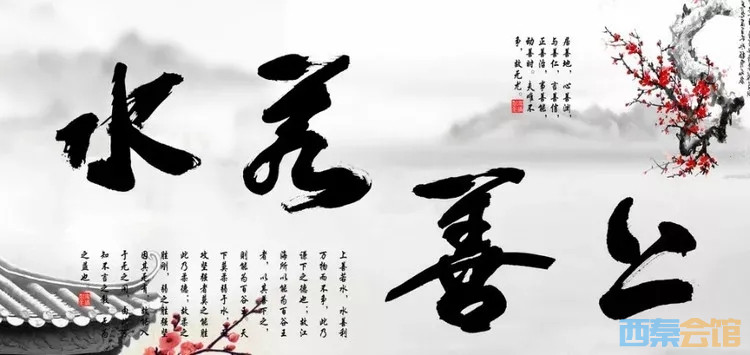 上善若水
居善地，心善渊，
与善仁，言善信，
正善治，事善能，
动善时。夫唯不
争，故无尤。
上善若水，水善利
万物而不争，此乃
谦下之德也；故江
海所以能为百谷王
者，以其善下之，
则能为百谷王。天
下莫柔弱于水，而
攻坚强者莫之能胜
此乃柔德；故柔之
胜刚，弱之胜强坚
因其无有，故能入
于无之间，由此可
知不言之教、无为
之益也
西秦会馆